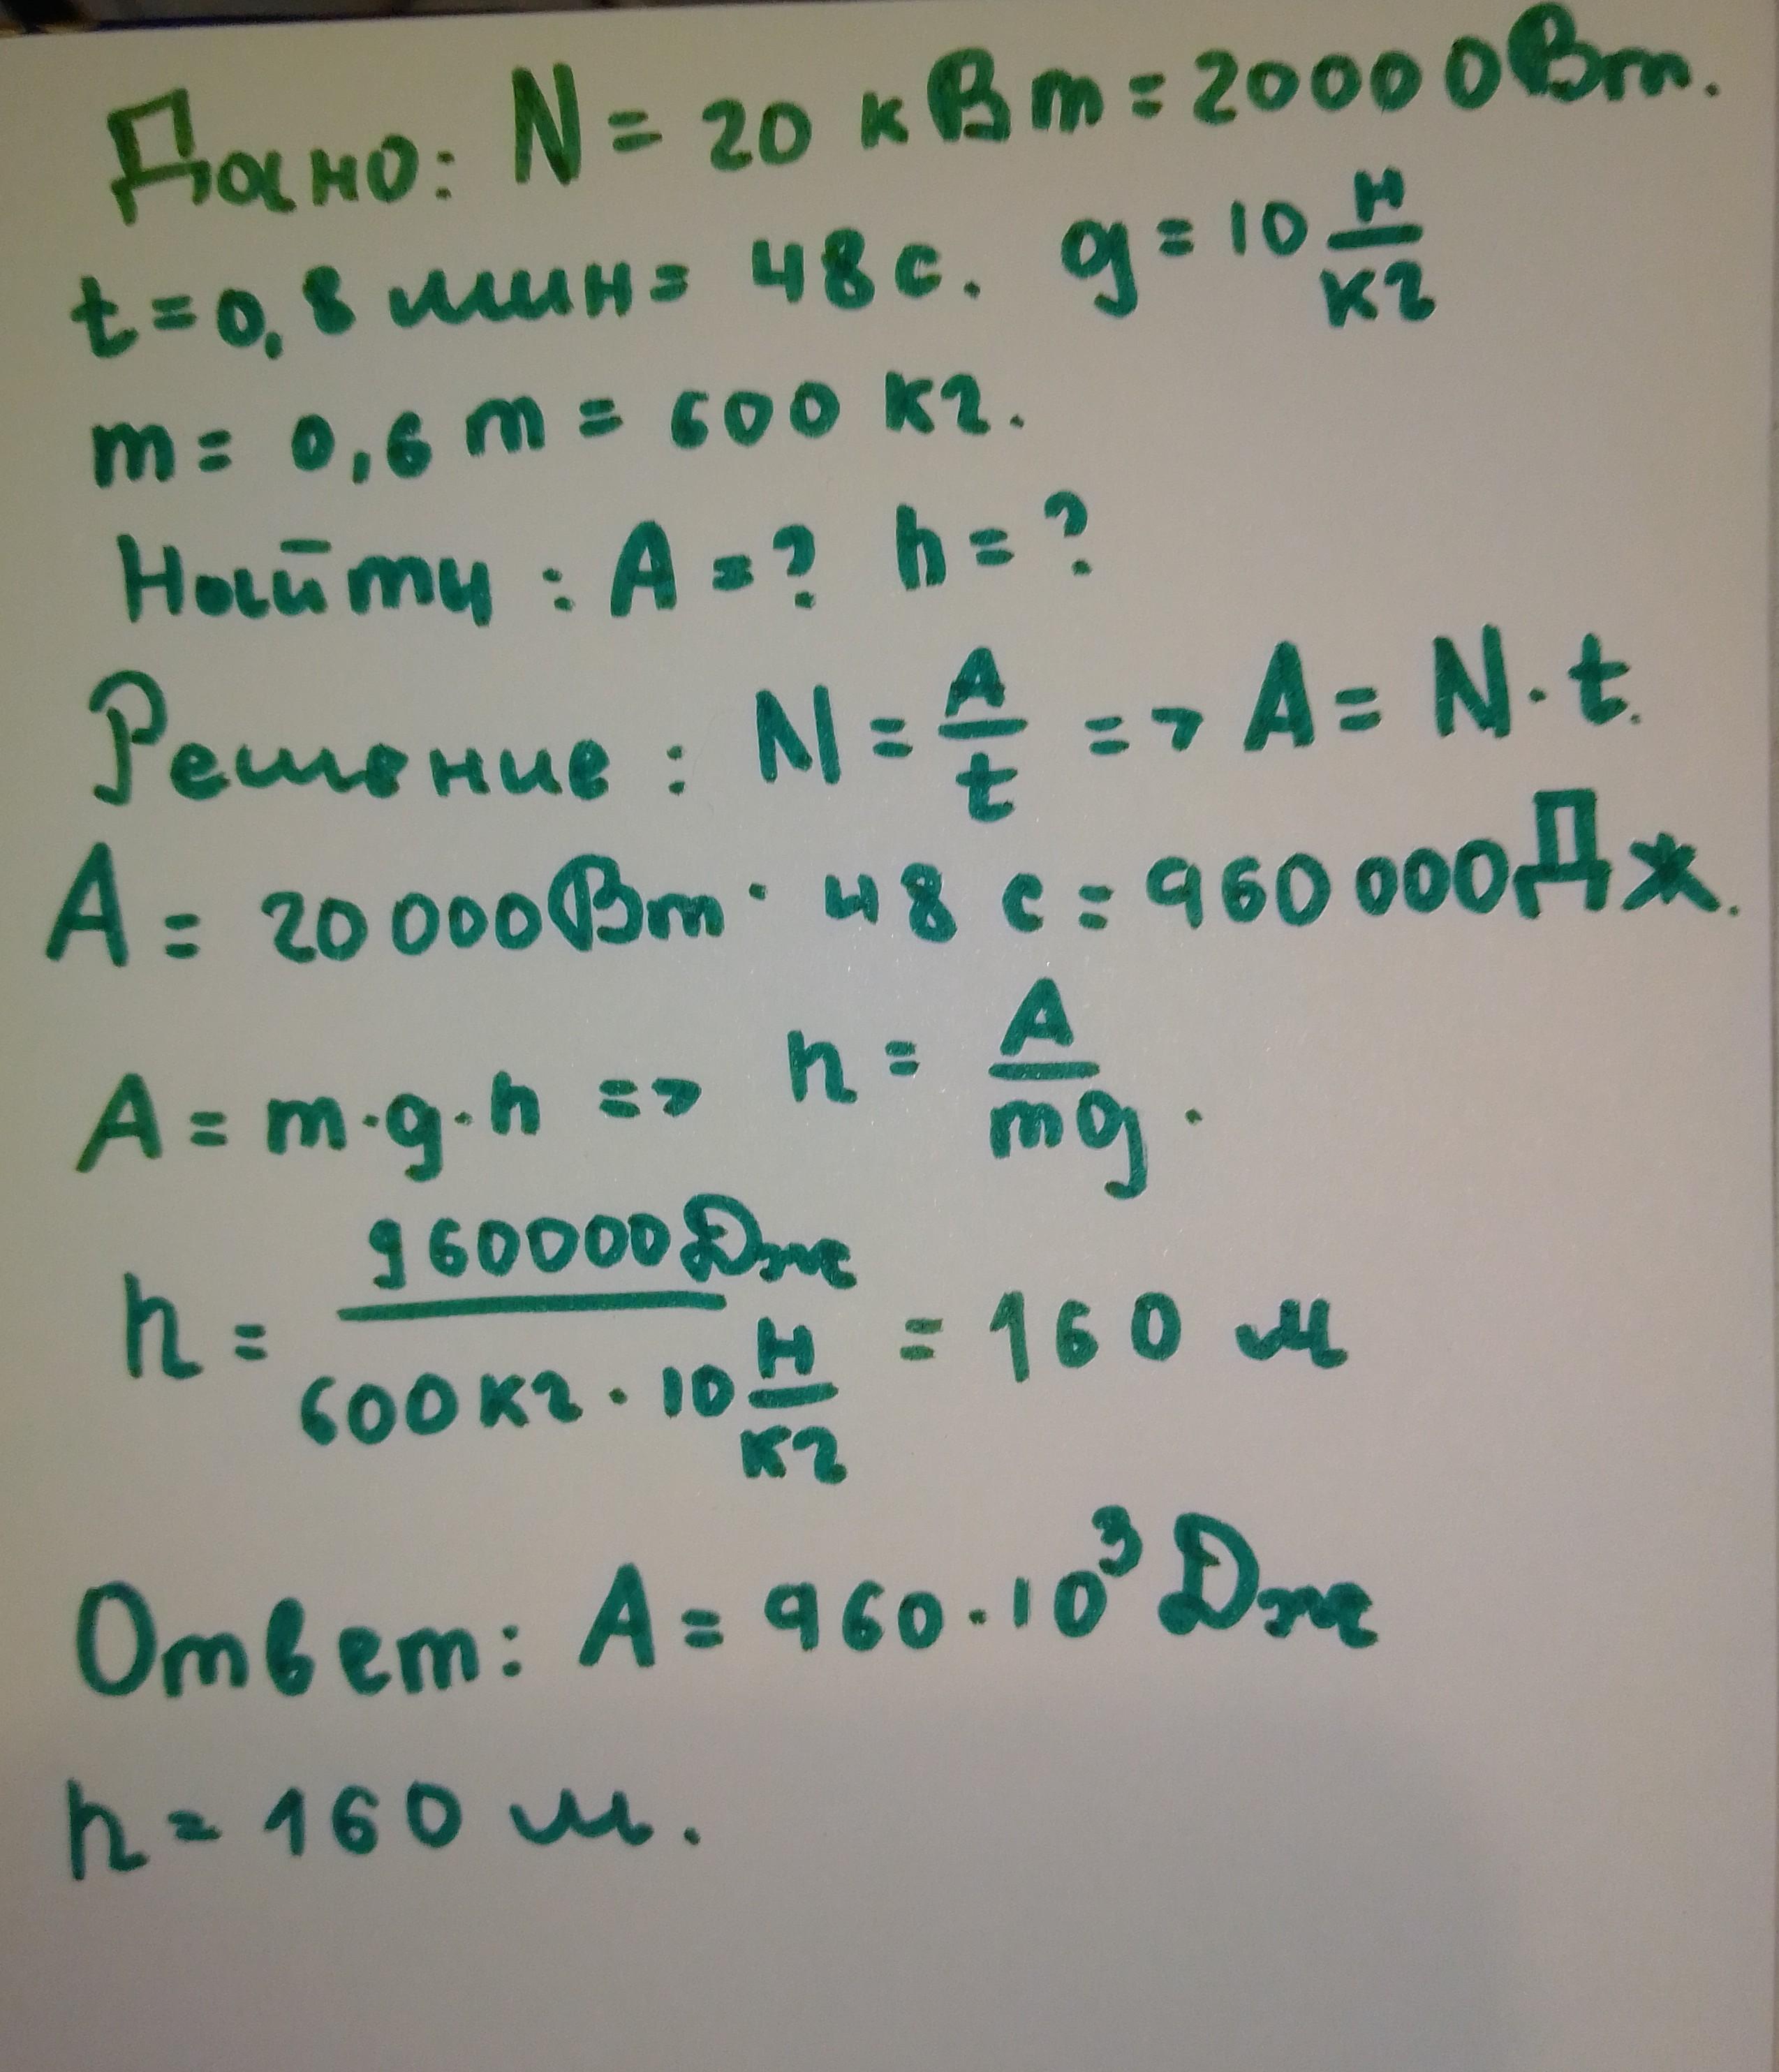 Дано: N = 20 кВт = 20000Вт.
t = 0,8 мин = 48 с. g = 10 Н/кг
m = 0,6 т = 600 кг.
Найти : A = ? h = ?
Решение : N = A/t => A = N·t.
A = 20 000Вт · 48 с = 960 000Дж.
A = m·g·h => h = A/mg.
h = 960000Дж / 600кг · 10 Н/кг = 160 м
Ответ: A = 960·10³ Дж
h = 160 м.